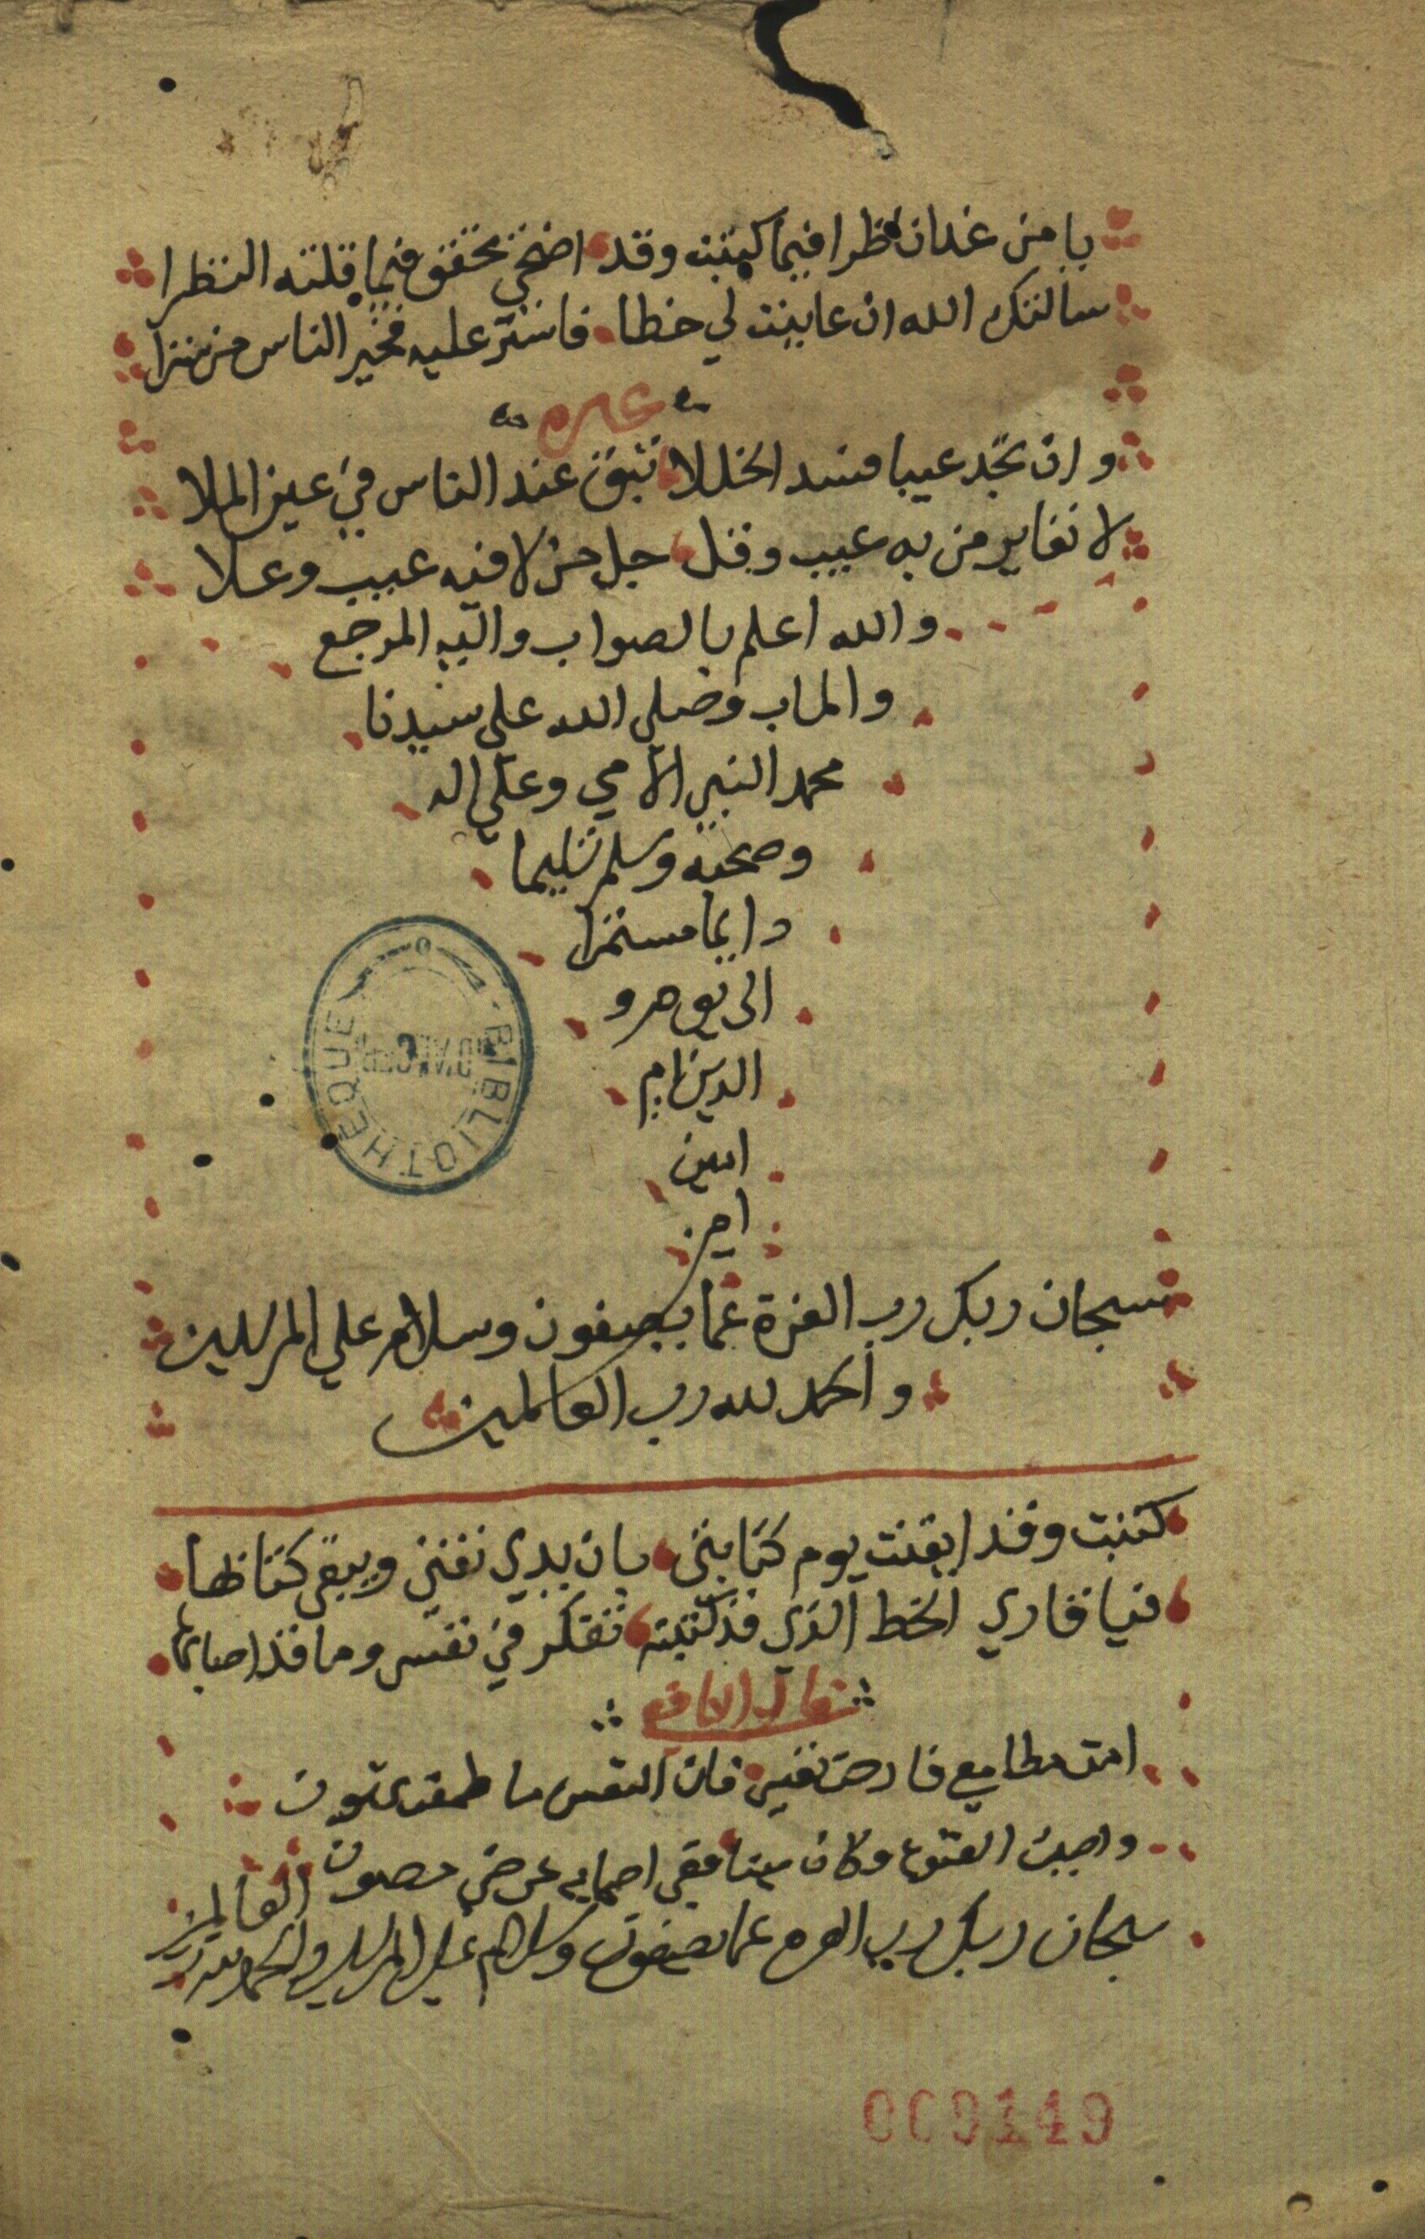 يا من غدا ناظرا فيما كتبت وقد اضحي يحقق فيما قلته النظرا
سالتك الله ان عاينت لي خطا فاستر عليه فخير الناس من سترا
غيره
وان تجد عيبا فسد الخللا تبق عند الناس في عين الملا
لا تعاير من به عيب وقل جل من لا فيه عيب وعلا
والله اعلم بالصواب واليه المرجع
والماب وصلي الله علي سيدنا
محمد النبي الامي وعلي اله
وصحبه وسلم تسليما
دايما مستمرا
الى يوم
الدين
امين
امين
سبحان ربك رب العزة عما يصفون وسلام علي المرسلين
والحمد لله رب العالمين
كتبت وقد ايقنت يوم كتابتي بان يدي تفني ويبقى كتابها
فيا قاري الخط الذي قد كتبته تفكر في نفسي وما قد اصابها
قال
امت مطامعي فارحت نفسي فان النفس ما طمعت تهون
واحييت القنوع وكان ميتا ففي احيايه عرضي مصون
سبحان ربك رب العزه عما يصفون وسلام علي المرسلين والحمد لله رب العالمين
BIBLIOTHEQUE
009149